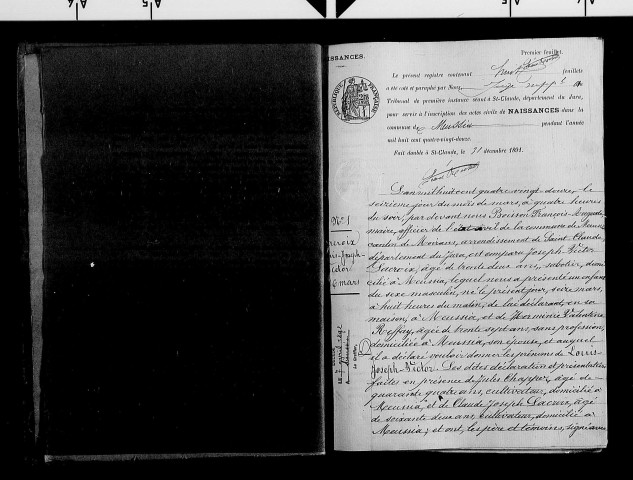 NAISSANCES.
Premier feuillet.
Le présent registre contenant feuillets
a été coté et paraphé par Nous, Juge supp
Tribunal de première instance séant à St-Claude, département du Jura,
pour servir à l'inscription des actes civils de NAISSANCES dans la
commune de Meussia pendant l'année
mil huit cent quatre-vingt-douze.
Fait double à St-Claude, le 21 décembre 1891.
RÉPUBLIQUE FRANÇAISE
L'an mil huit cent quatre vingt-douze, le
seizième jour du mois de mars, à quatre heures
du soir, par devant nous Boisson François-Auguste
maire, officier de l'état civil de la commune de Meussia
canton de Moirans, arrondissement de Saint-Claude,
département du Jura, est comparu Joseph Victor
Lacroix, âgé de trente deux ans, sabotier, domi
cilié à Meussia, lequel nous a présenté un enfant
du sexe masculin, né le présent jour, seize mars,
à huit heures du matin, de lui déclarant, en sa
maison, à Meussia, et de Herminie Valentine
Reffay, âgée de trente sept ans, sans profession,
domiciliée à Meussia, son épouse, et auquel
il a déclaré vouloir donner les prénoms de Louis
Joseph-Victor. Les dites déclaration et présentation
faites en présence de Jules Chappez, âgé de
quarante quatre ans, cultivateur, domicilié à
Meussia, et de Claude Joseph Lacroix, âgé
de soixante deux ans, cultivateur, domicilié à
Meussia; et ont, les père et témoins, signé avec
No 1
Lacroix
Louis-Joseph-
Victor
16 mars